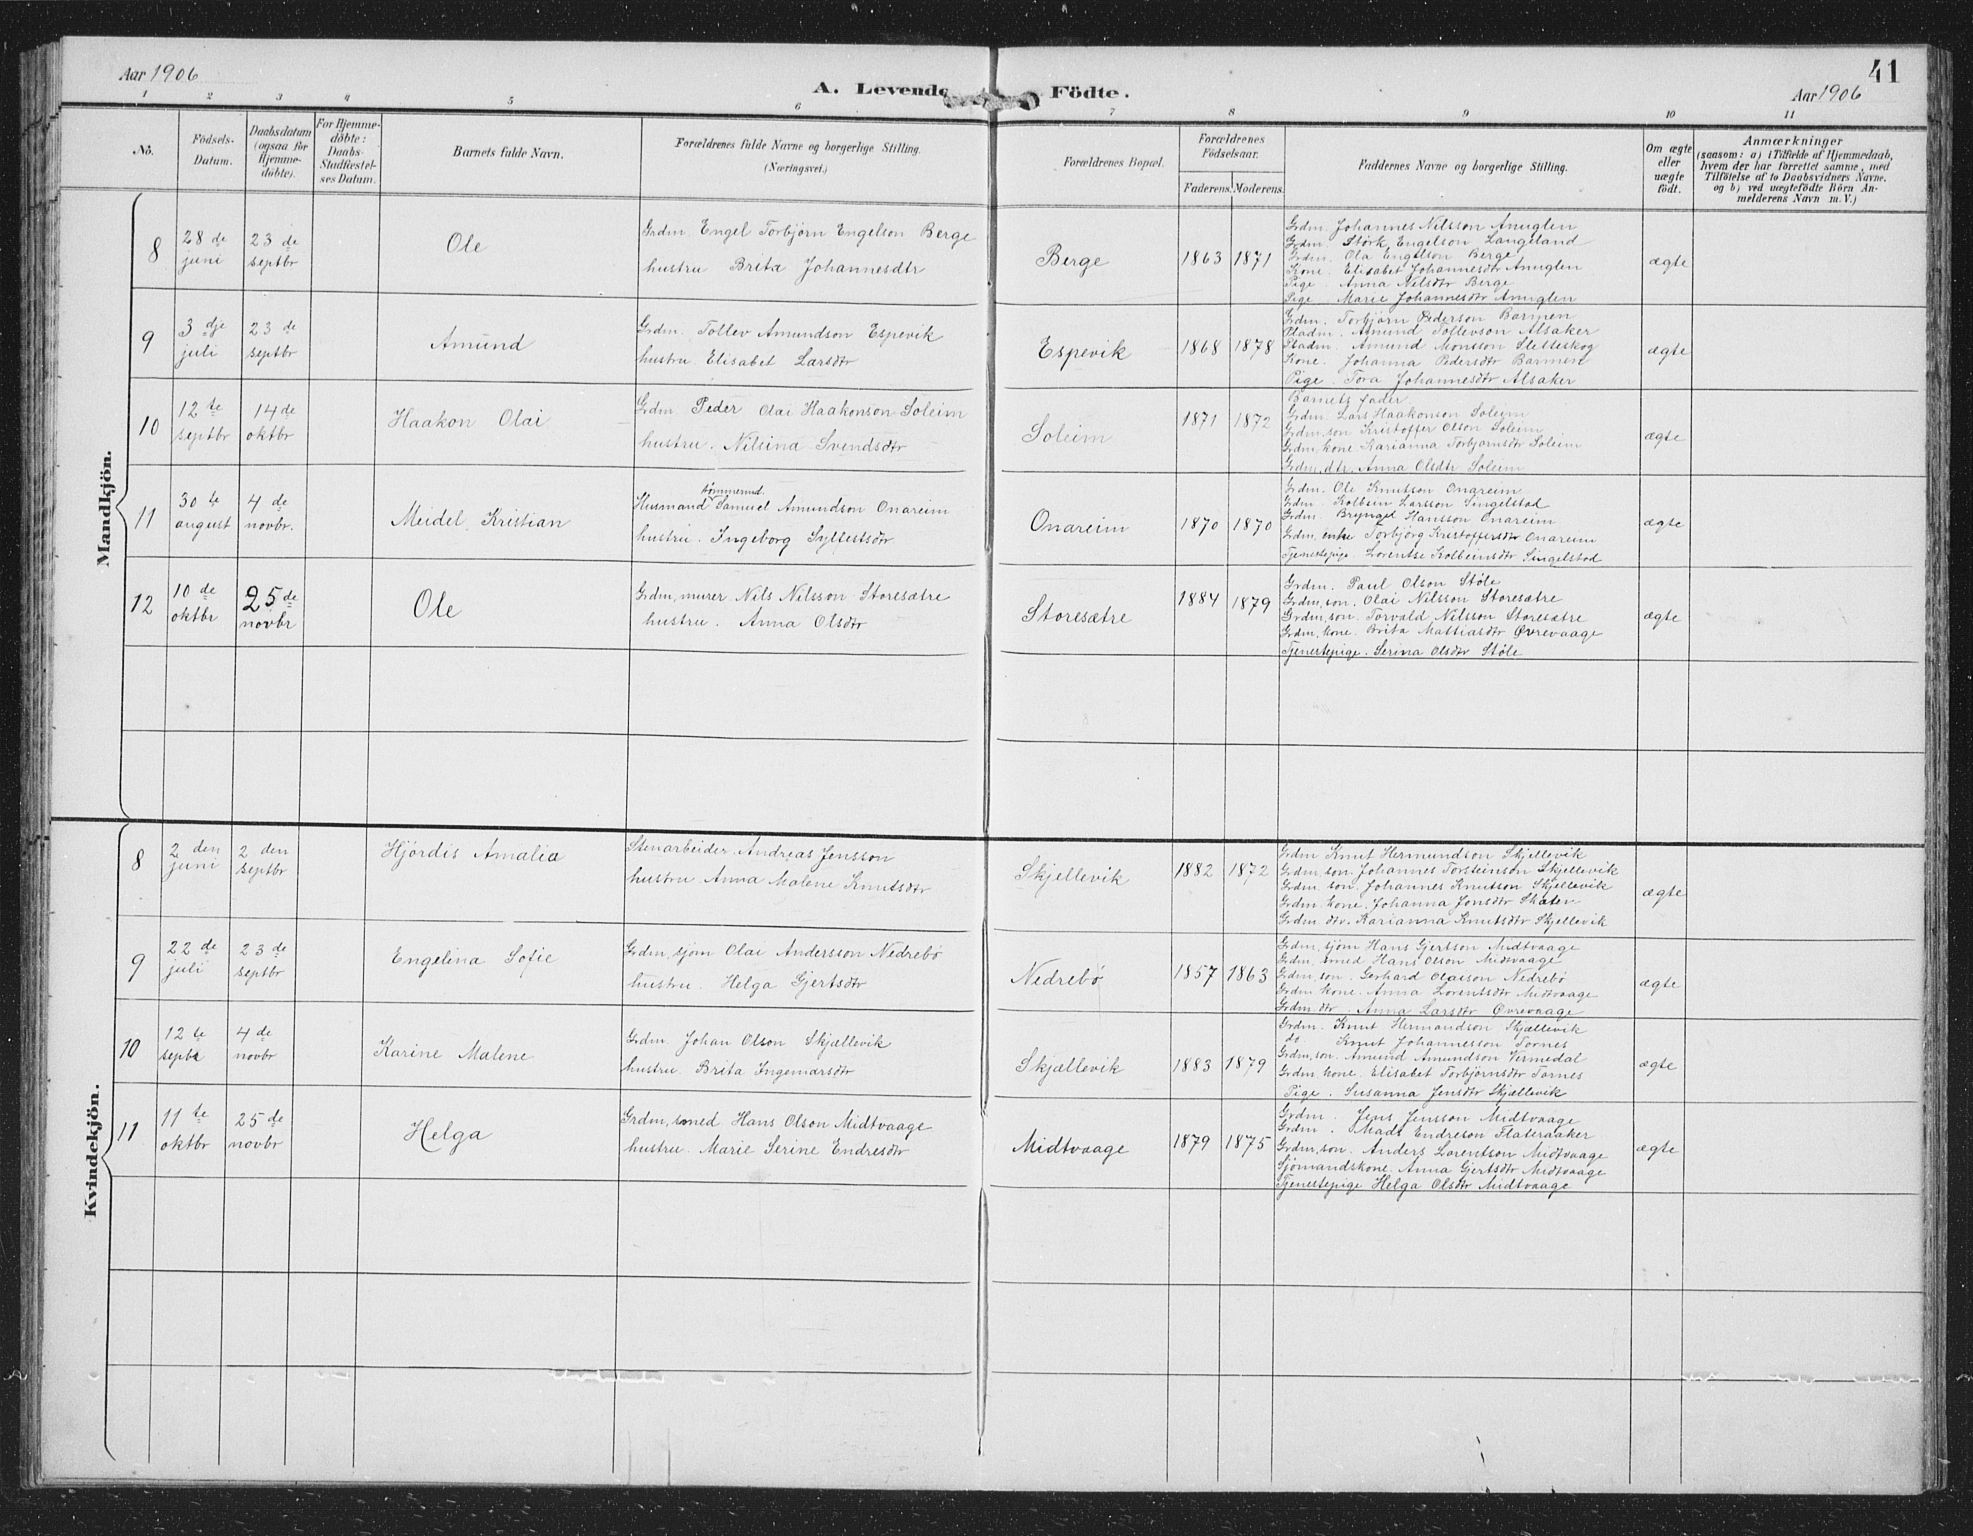 Aar 1906
A. Levende Födte.
41
Aar 1906
1 2 3 4 5 6 7 8 9 10 11
No.
Födsels-Datum.
Daabsdatum (ogsaa for Hjemme-döbte).
For Hjemme-döbte: Daabs-Stadfæstel-ses Datum.
Barnets fulde Navn.
Forældrenes fulde Navne og borgerlige Stilling. (Næringsvei.)
Forældrenes Bopæl.
Forældrenes Födselsaar.
Faderens. Moderens.
Faddernes Navne og borgerlige Stilling.
Om ægte eller uægte födt.
Anmærkninger
(saasom: a) i Tilfælde af Hjemmedaab,
hvem der har forrettet samme, med
Tilföielse af to Daabsvidners Navne.
og b) ved uægtefödte Börn An-
melderens Navn m. V.)
Mandkjön.
8
28 de juni
23 de septbr
Ole
Grdm. Engel Torbjörn Engelson Berge
hustru Brita Johannesdtr
Berge
1863 1871
Grdm. Johannes Nilsson Anuglen
Grdm. Störk Engelson Langeland
Grdm. Ola Engelson Berge
Kone. Elisabet Johannesdtr Anuglen
Pige. Anna Nilsdtr Berge
Pige. Marie Johannesdtr Anuglen
ægte
9
3 dje juli
23 de septbr
Amund
Grdm. Tollev Amundson Espevik
hustru Elisabet Larsdtr
Espevik
1868 1878
Grdm. Torbjörn Pederson Barmen
Pladm. Amund Tollevson Alsaker
Pladm. Amund Monsson Sletteskog
Kone. Johanna Pedersdtr Barmen
Pige. Tora Johannesdtr Alsaker
ægte
10
12 te septbr
14 de oktbr
Haakon Olai
Grdm. Peder Olai Haakonson Soleim
hustru. Nilsina Svendsdtr
Soleim
1871 1872
Barnets fader.
Grdm. Lars Haakonson Soleim
Grdm, son Kristoffer Olson Soleim
Grdm, kone Karianna Torbjornsdtr Soleim
Grdm, dtr. Anna Olsdtr Soleim
ægte
11
30 te august
4 de novbr.
Meidel Kristian
tömmermd.
Husmand Samuel Amundson Onareim
hustru. Ingeborg Syllestsdtr
Onareim
1870 1870
Grdm. Ole Knutson Onareim
Grdm. Kolbein Larsson Singelstad
Grdm. Brynjel Hansson Onareim
Grdm, enke Torbjörg Kristoffersdtr Onareim
Tjenestepige. Lorentse Kolbeinsdtr Singelstad
ægte
12
10 de oktbr
25 de novbr
Ole
Grdm, murer. Nils Nilsson Storesætre
hustru. Anna Olsdtr
Storesætre
1884 1879
Grdm. Paul Olson Støle
Grdm, son. Olai Nilsson Storesætre
Grdm, son. Torvald Nilsson Storesætre
Grdm, kone. Brita Mattiasdtr Øvrevaage
Tjenestepige. Serina Olsdtr Støle
ægte
Kvindekjön.
8
2 den juni
2 den septbr
Hjördis Amalia
Stenarbeider Andreas Jensson
hustru Anna Malene Knutsdtr
Skjellevik
1882 1872
Grdm Knut Hermundson Skjellevik
Grdm, son. Johannes Torsteinson Skjellevik
Grdm. son. Johannes Knutson Skjellevik
Grdm. kone. Johanna Jonsdtr Skaten
Grdm. dtr. Karianna Knutsdtr Skjellevik
ægte
9
22 de juli
23 de septbr
Engelina Sofie
Grdm, sjöm Olai Andersson Nedrebö
hustru. Helga Gjertsdtr
Nedrebö
1857 1863
Grdm, sjöm Hans Gjertson Midtvaage
Grdm, smed Hans Olson Midtvaage
Grdm, son. Gerhard Olaison Nedrebö
Grdm kone. Anna Lorentsdtr Midtvaage
Grdm. dtr. Anna Larsdtr Øvrevaage
ægte
10
12 te septb
4 de novbr
Karine Malene
Grdm. Johan Olson Skjællevik
hustru. Brita Ingemarsdtr
Skjællevik
1883 1879
Grdm. Knut Hermandson Skjællevik
do Knut Johannesson Tornes
Grdm, son. Amund Amundson Vermedal
Grdm. kone. Elisabet Torbjörnsdtr Tornes
Pige. Susanna Jensdtr Skjællevik
ægte
11
11 te oktbr
25 de novbr
Helga
Grdm, smed Hans Olson Midtvaage
hustru. Marie Serine Endresdtr
Midtvaage
1879 1875
Grdm. Jens Jensson Midtvaage
Grdm. Mads Endreson Flateraaker
Grdm, son. Anders Lorentson Midtvaage
Sjömandskone. Anna Gjertsdtr Midtvaage
Tjenestepige Helga Olsdtr Midtvaage
ægte